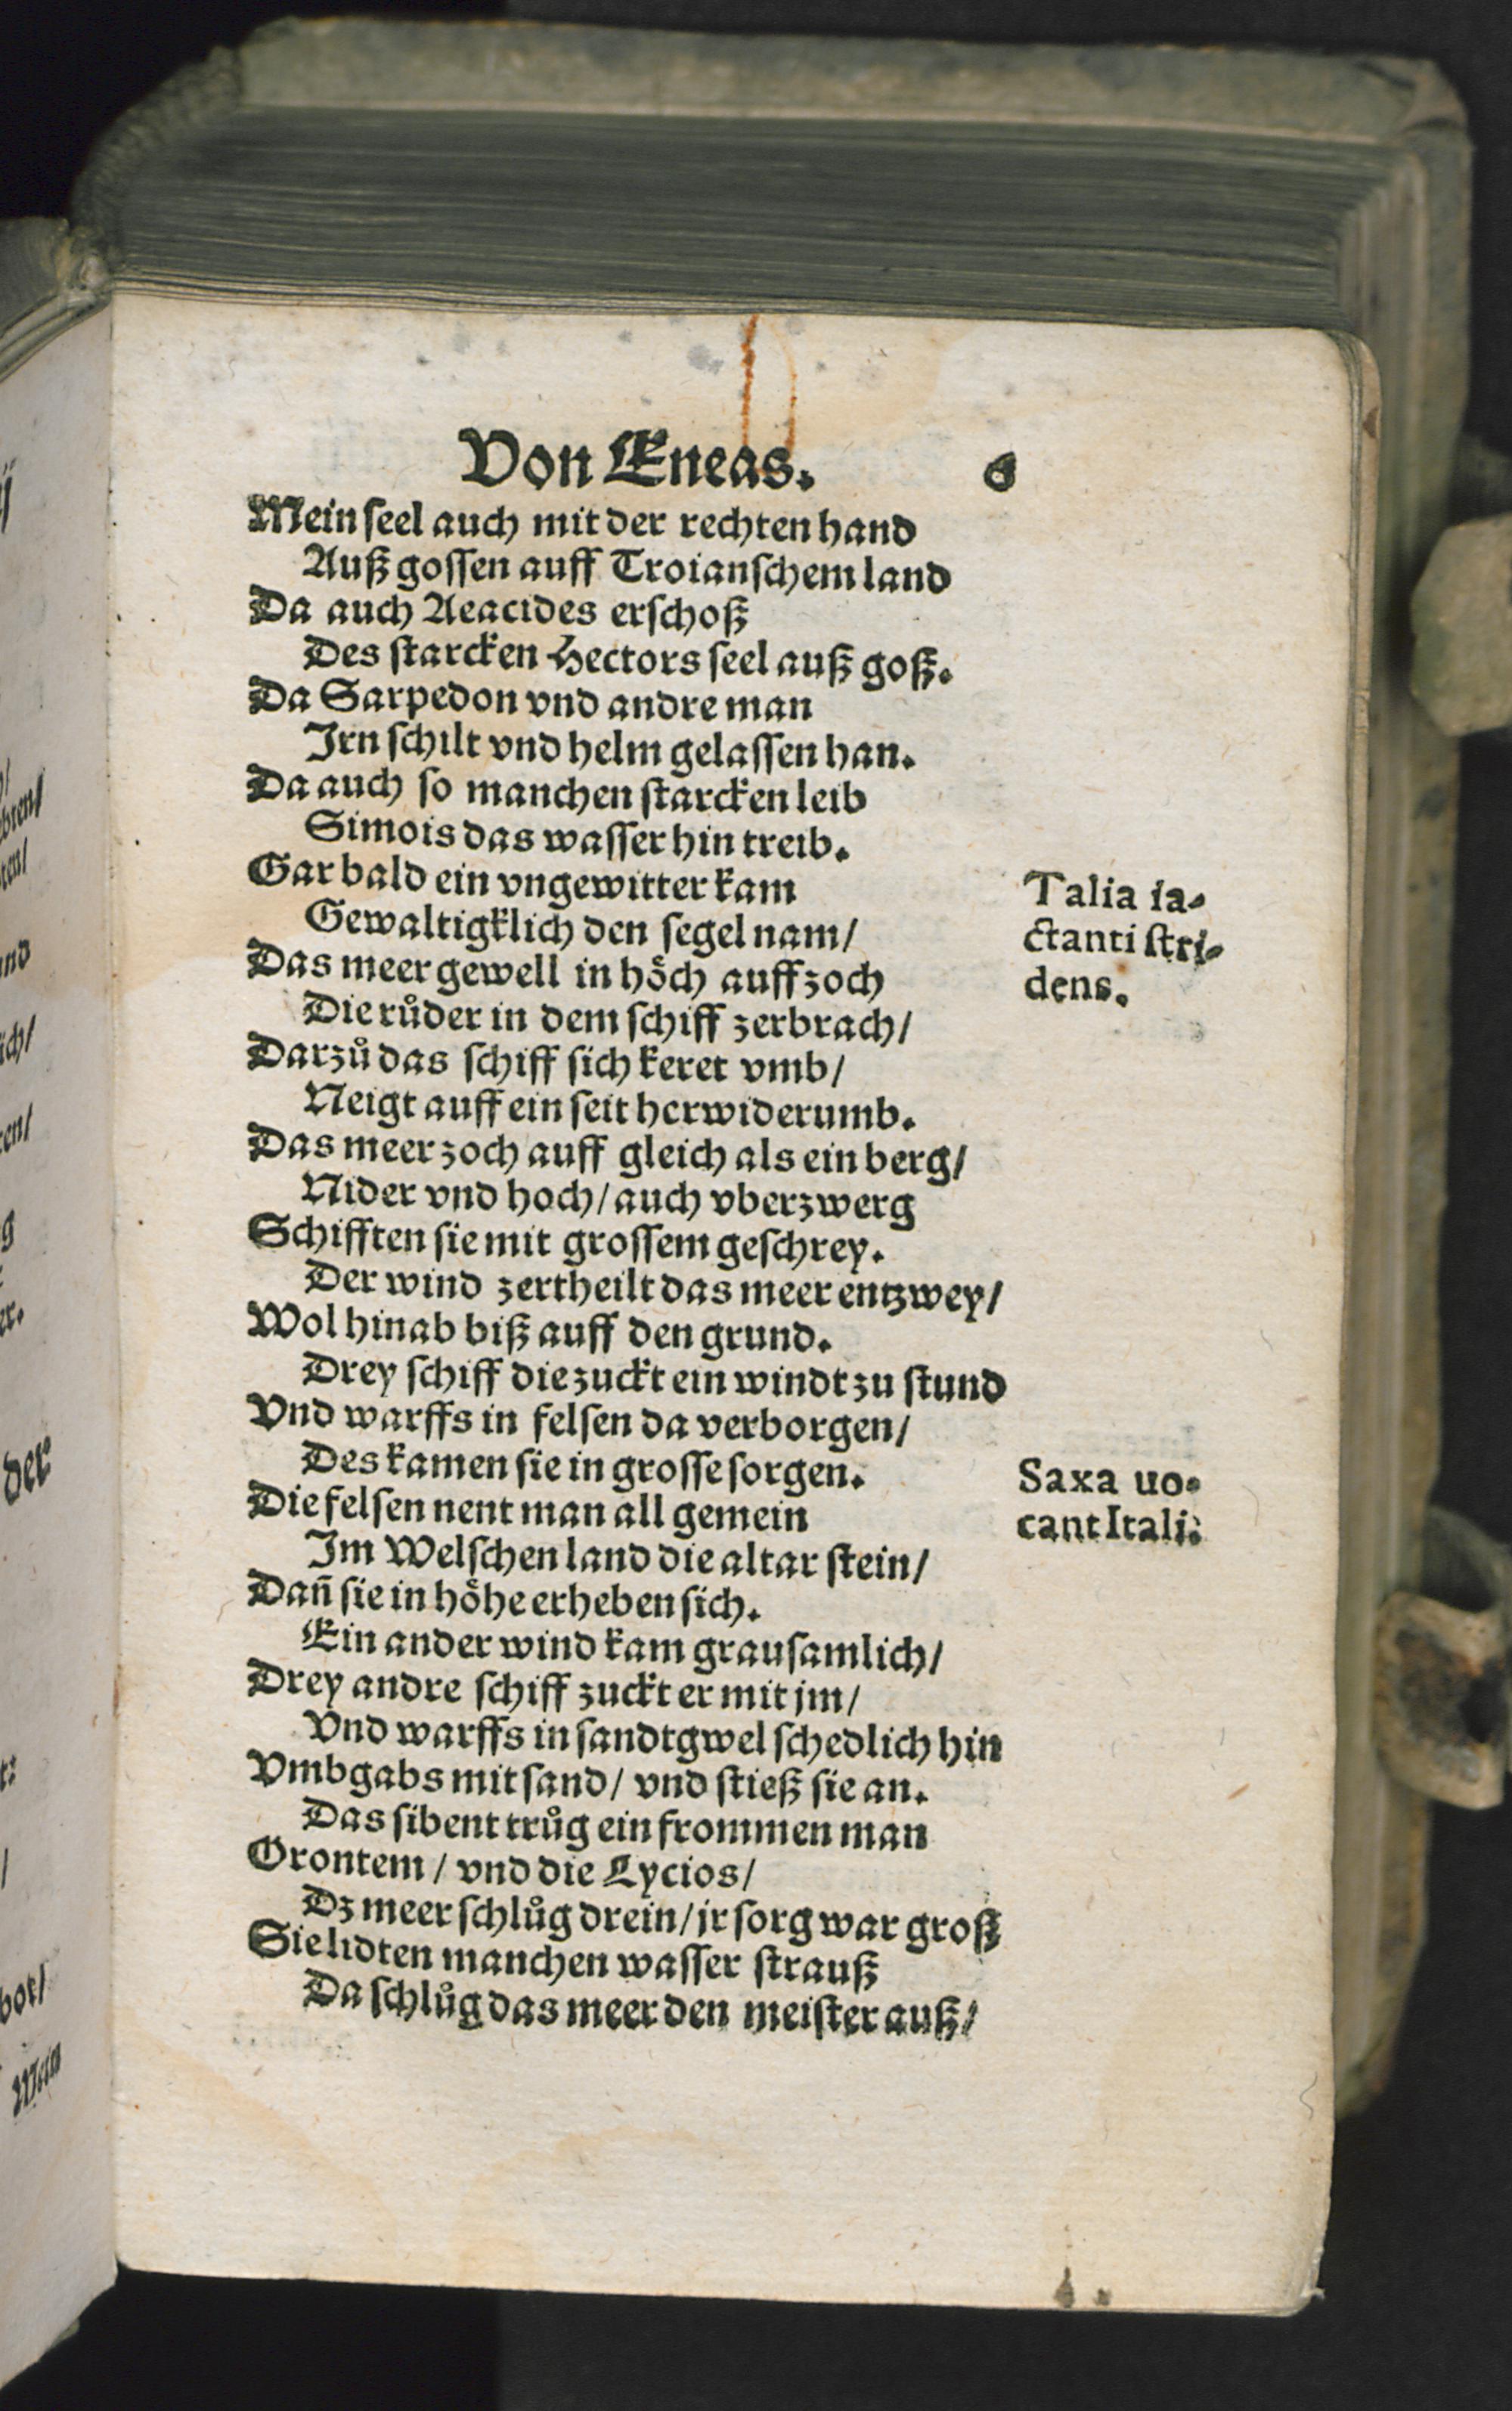 Von Eneas. 6
Mein seel auch mit der rechten hand
Außgossen auff Troianschem land
Da auch Aeacides erschoß
Des starcken Hectors seel auß goß.
Da Sarpedon vnd andre man
Jrn schilt vnd helm gelassen han.
Da auch so manchen starcken leib
Simois das wasser hin treib.
Gar bald ein vngewitter kam
Gewaltigklich den segel nam/
Das meer gewell in hoͤch auff zoch
Die ruͦder in dem schiff zerbrach/
Darzuͦ das schiff sich keret vmb/
Neigt auff ein seit herwiderumb.
Das meer zoch auff gleich als ein berg/
Nider vnd hoch/ auch vberzwerg
Schifften sie mit grossem geschrey.
Der wind zertheilt das meer entzwey/
Wol hinab biß auff den grund.
Drey schiff die zuckt ein windt zu stund
Vnd warffs in felsen da verborgen/
Des kamen sie in grosse sorgen.
Die felsen nent man all gemein
Jm Welschen land die altar stein/
Dañ sie in hoͤhe erheben sich.
Ein ander wind kam grausamlich/
Drey andre schiff zuckt er mit jm/
Vnd warffs in sandtgwel schedlich hin
Vmbgabs mit sand/ vnd stieß sie an.
Das sibent truͦg ein frommen man
Orontem/ vnd die Lycios/
Dz meer schluͦg drein/ jr sorg war groß
Sie lidten manchen wasser strauß
Da schluͦg das meer den meister auß/
Talia ia-
ctanti stri-
dens.
Saxa uo-
cant Itali.